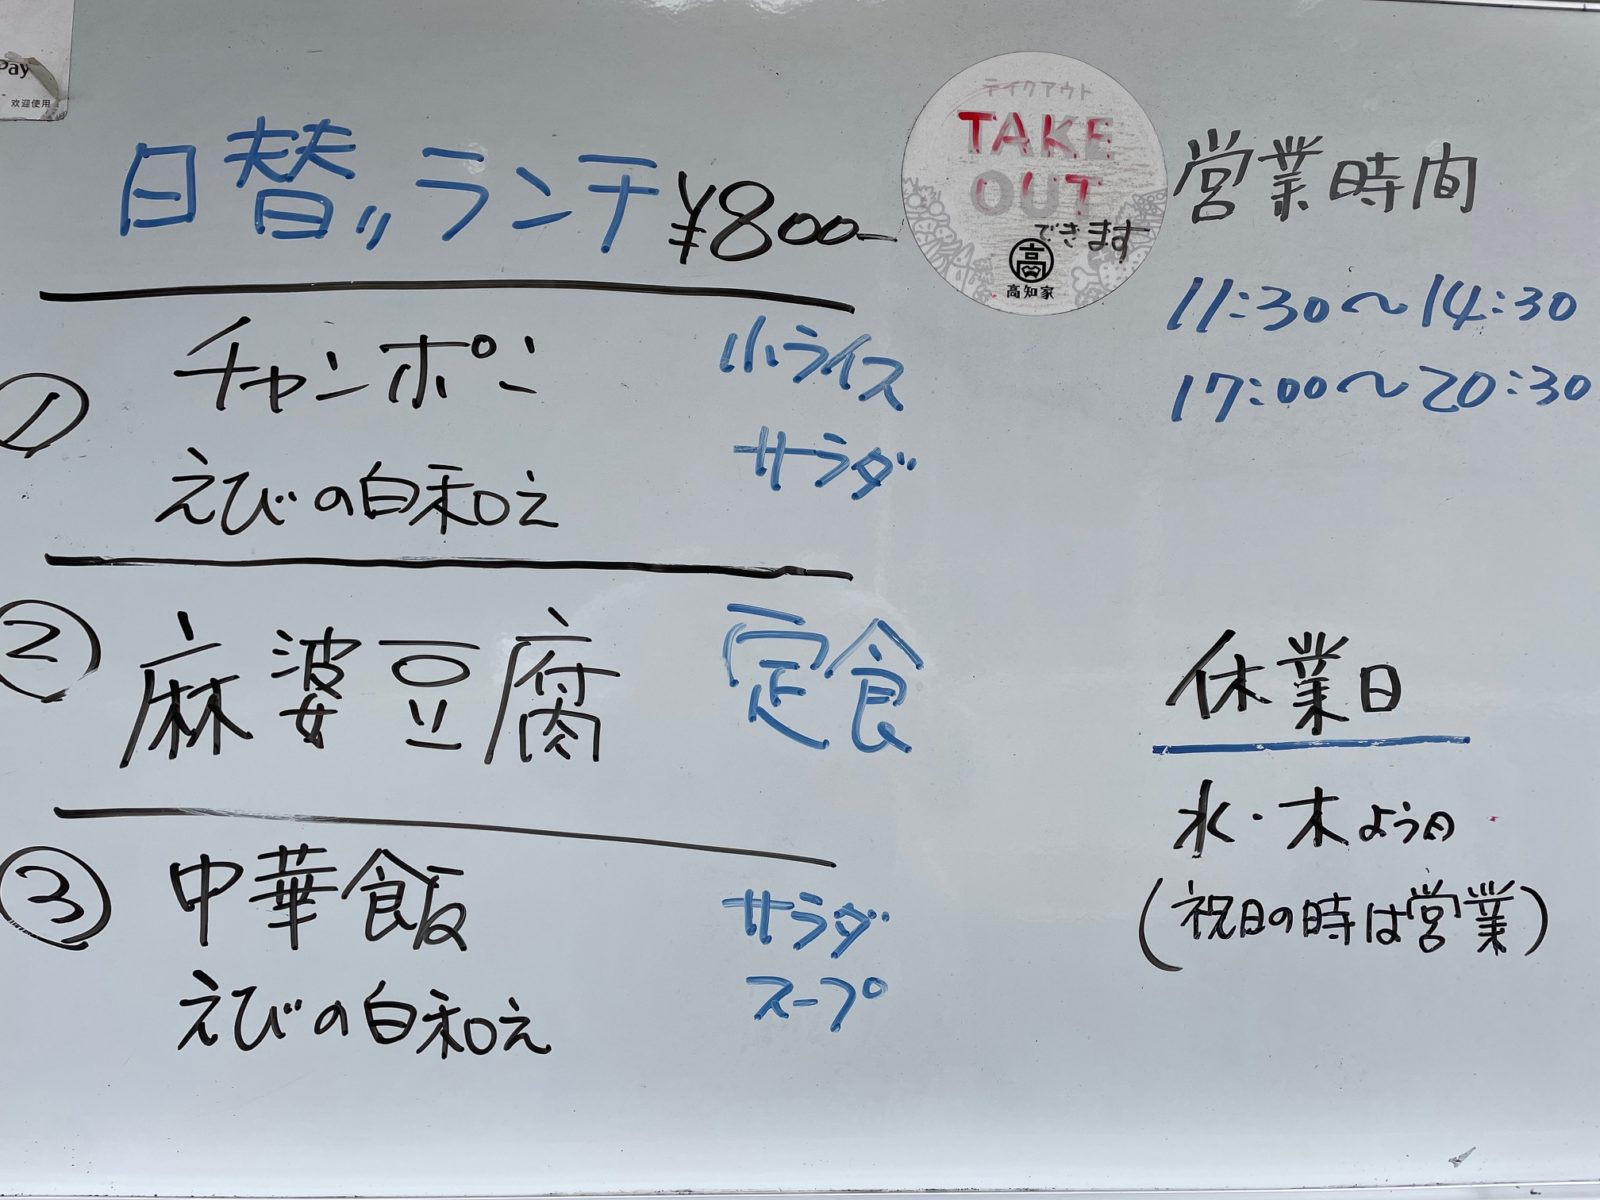 Pay
欢迎使用
日替りランチ ¥800-
① チャンポン 小ライス
えびの白和え サラダ
② 麻婆豆腐 定食
③ 中華飯 サラダ
えびの白和え スープ
テイクアウト
TAKE
OUT
できます
高
高知家
営業時間
11:30〜14:30
17:00〜20:30
休業日
水・木よう日
(祝日の時は営業)